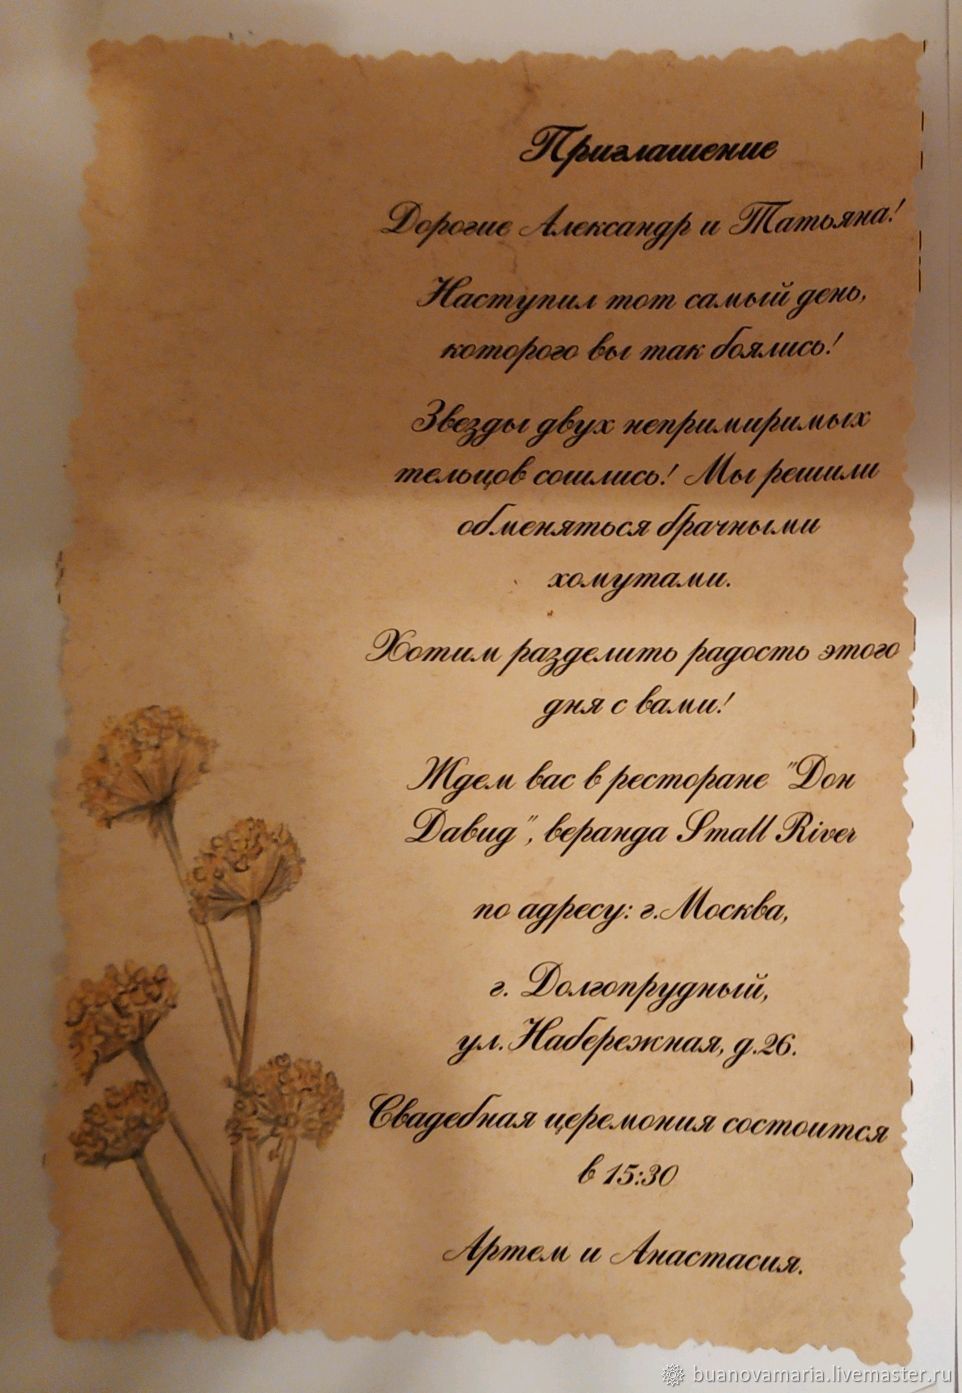 Приглашение
Дорогие Александр и Татьяна!
Наступил тот самый день,
которого вы так боялись!
Звезды двух непримиримых
тельцов сошлись! Мы решили
обменяться брачными
хомутами.
Хотим разделить радость этого
дня с вами!
Ждем вас в ресторане "Дон
Давид", веранда Small River
по адресу: г.Москва,
г. Долгопрудный,
ул.Набережная, д.26.
Свадебная церемония состоится
в 15:30
Артем и Анастасия.
buanovamaria.livemaster.ru